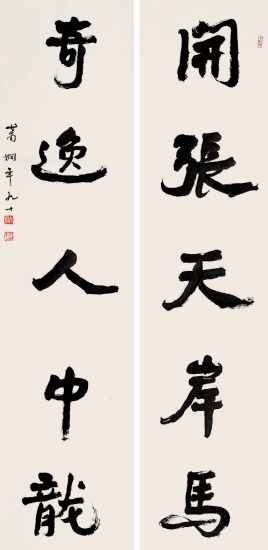 開張天岸馬
奇逸人中龍
萱嫺年九十